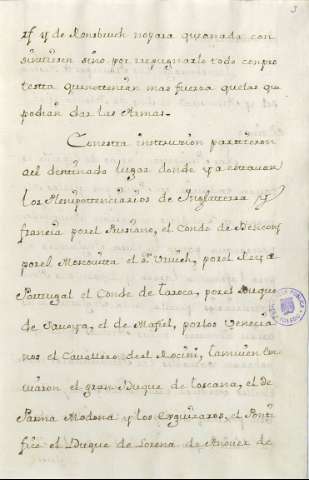 3
rf y de Ronsbruch no para que nada con
sintiesen sino por repugnarlo todo con pro
testta que no tenian mas fuerza que las que
podian dar las Armas.
Con estta instrucion partieron
al destinado lugar donde ya estavan
los Plenipottenciarios de Inglatterra y
francia por el Prusiano, el Conde de
por el Moscovitta el sr. por el Rey de
Porttugal el Conde de Taroca, por el Duque
de Savoya, el de Mafei, por los Venecia
nos el Cavallero de el Rocini, tamvien em
viaron el gran Duque de toscana, el de
Parma Modena y los Esguizaros, el Ponti
fice el Duque de Lorena de Anover de